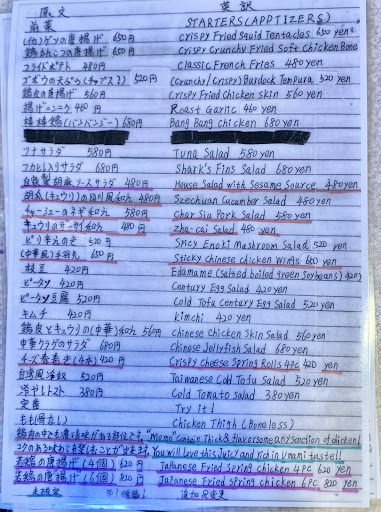 原文 英訳
前菜 STARTERS(APPTIZERS)
(げそ)ゲソの唐揚げ 650円 Crispy Fried Squid Tentacles 650 yen
鶏なんこつの唐揚げ 650円 Crispy Crunchy Fried Soft Chicken Bone
フライドポテト 480円 Classic French Fries 480 yen
ゴボウの天ぷら(チップス?) 520円 (Crunchy/Crispy) Burdock Tempura 520 yen
鶏皮の唐揚げ 560円 Crispy Fried Chicken Skin 560 yen
揚げニンニク 460円 Roast Garlic 460 yen
棒棒鶏(バンバンジー) 680円 Bang Bang Chicken 680 yen
ツナサラダ 580円 Tuna Salad 580 yen
フカヒレ入りサラダ 680円 Shark's Fins Salad 680 yen
自家製胡麻ソースサラダ 480円 House Salad with Sesame Source 480 yen
胡瓜(キュウリ)の四川風和え 480円 Szechuan Cucumber Salad 480 yen
チャーシューのネギ和え 580円 Char Siu Pork Salad 580 yen
キュウリのザーサイ和え 480円 Zha-cai Salad 480 yen
ピリ辛えのき 520円 Spicy Enoki Mushroom Salad 520 yen
(中華風)手羽先 650円 Sticky chinese chicken wings 650 yen
枝豆 420円 Edamame (Salted boiled green Soybeans) 420
ピータン 420円 Century Egg Salad 420 yen
ピータン豆腐 520円 Cold Tofu Century Egg Salad 520 yen
キムチ 420円 kimchi 420 yen
鶏皮とキュウリの(中華)和え 560円 Chinese Chicken Skin Salad 560 yen
中華クラゲのサラダ 680円 Chinese Jellyfish Salad 680 yen
チーズ春巻き(4本) 420円 Crispy Cheese Spring Rolls 4PC 420 yen
台湾風冷奴 520円 Taiwanese Cold Tofu Salad 520 yen
冷やしトマト 380円 Cold Tomato Salad 380 yen
定番 Try it!
もも(骨なし) Chicken Thigh (Boneless)
鶏肉の中でも濃い味がある部位です。"Momo" contain Thick & flavorsome any section of chicken!
コクのあるうまみとお楽しむことが出来ます。You will love this Juicy and rich in Umami taste!!
若鶏の唐揚げ(4個) 620円 Japanese Fried Spring chicken 4PC 620 yen
若鶏の唐揚げ(6個) 820円 Japanese Fried Spring chicken 6PC 820 yen
未規定 追加及変更